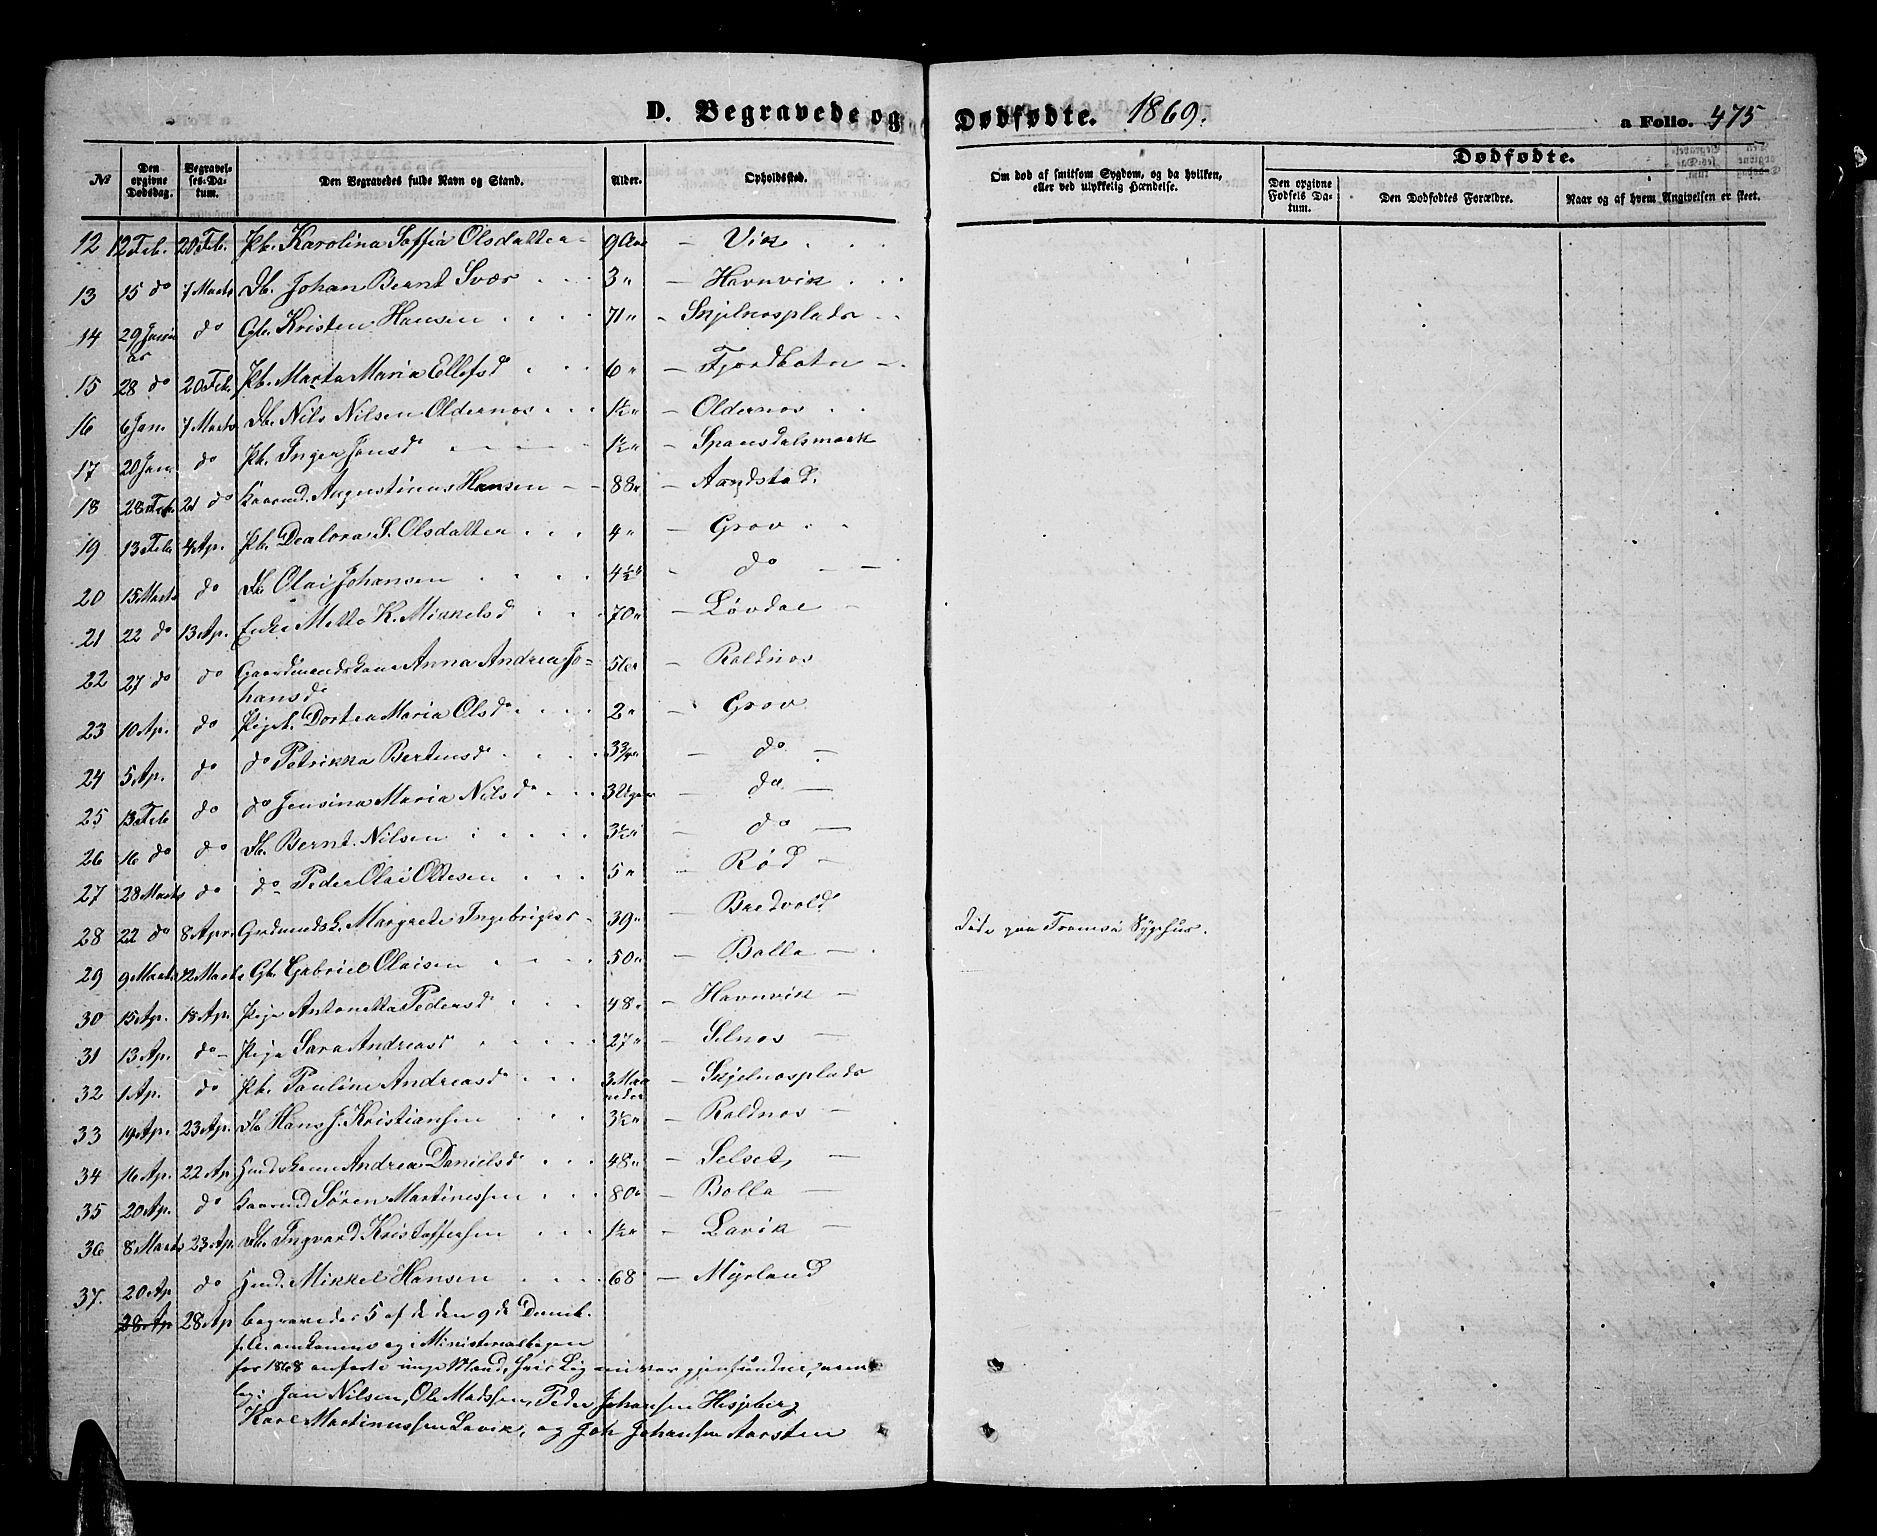 D. Begravede og Dødfødte. 1869. a Folio. 475
№ Den opgivne Dødsdag. Begravelses-Datum. Den Begravedes fulde Navn og Stand. Alder. Opholdssted. Om død af smitsom Sygdom, og da hvilken, eller ved ulykkelig Hændelse. Dødfødte. Den opgivne Fødsels Datum. Den Dødfødtes Forældre. Naar og af hvem Angivelsen er skeet.
12 12 Feb. 20 Feb. Pb. Karolina Soffia Olsdatter 9 Aar — Vik
13 15 do 7 Marts Db. Johan Bernt Svær 3 " — Havnvik
14 29 Januar do Gb. Kristen Hansen 71 " — Skjelnesplads
15 28 do 20 Feb. Pb. Marta Maria Ellefsd 6 " — Fjordbotn
16 6 Jan. 7 Marts Db. Nils Nilsen Oldernæs 1½ " — Oldernes
17 20 Jan do Pb. Inger Jonsd 1½ " — Spansdalsmark
18 28 Feb. 21 do Kaarmd. Augustinus Hansen 88 " — Aandstad
19 13 Feb 4 Ap. Pb. S. Olsdatter 4 " — Grov
20 15 Marts do Db Olai Johansen 4½ " — do
21 22 do 13 Ap. Enke Mette K. Mikkelsd 70 " — Løvdal
22 27 do do Gaardmandskone Anna Andrea Johansd 56 " — Roldnes
23 10 Ap. do Pigeb. Dortea Maria Olsd 2 " — Grov
24 5 Ap. do do Petrikka Bertheusd 3¾ " — do
25 13 Feb do do Jensina Maria Nilsd 3 Uger — do
26 16 do do Db. Bernt Nilsen 3½ — do
27 28 Marts do do Peder Olai Olsen 5 " — Rød
28 22 do 8 Apr. Grdmandsk. Margrete Ingebrigts 39 " — Bredvold Døde paa Tromsø Sygehus.
29 9 Marts 12 Marts Gb. Gabriel Olaisen 50 " — Bolla
30 15 Ap. 18 Ap. Pige Antonetta Pedersd 48 " — Havnvik
31 13 Ap. do Pige Sara Andreasd 27 " — Selnes
32 1 Ap. do Pb. Pauline Andreasd 3 Maaneder — Skjelnesplads
33 19 Ap. 23 Ap. Db Hans J. Kristiansen 3½ " — Roldnes
34 16 Ap. 22 Ap. Husdskone Andrea Danielsd 48 " — Selset
35 20 Ap. do Kaarmd Søren Martinussen 80 " — Bolla
36 8 Marts 23 Ap. Db. Ingvard Kristoffersen 1½ " — Lavik
37. 20 Ap do Husmd. Mikkel Hansen 68 — Myrland
28 Ap 28 Ap begravedes 5 af de den 9de
omkomne og i Ministerialbogen
for 1868 anførte unge Mænd, hvis Lig nu var gjenfundne, nem-
lig: Jan Nilsen, Ole Madssen, Peder Johansen Hesjeberg
Karl Martinussen Lavik, og Joh Johansen Aarsten